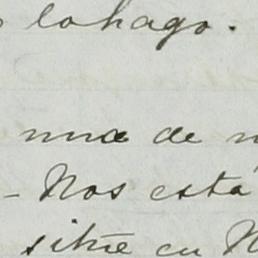 lo hago.
una de
- Nos esta
sitúe en N